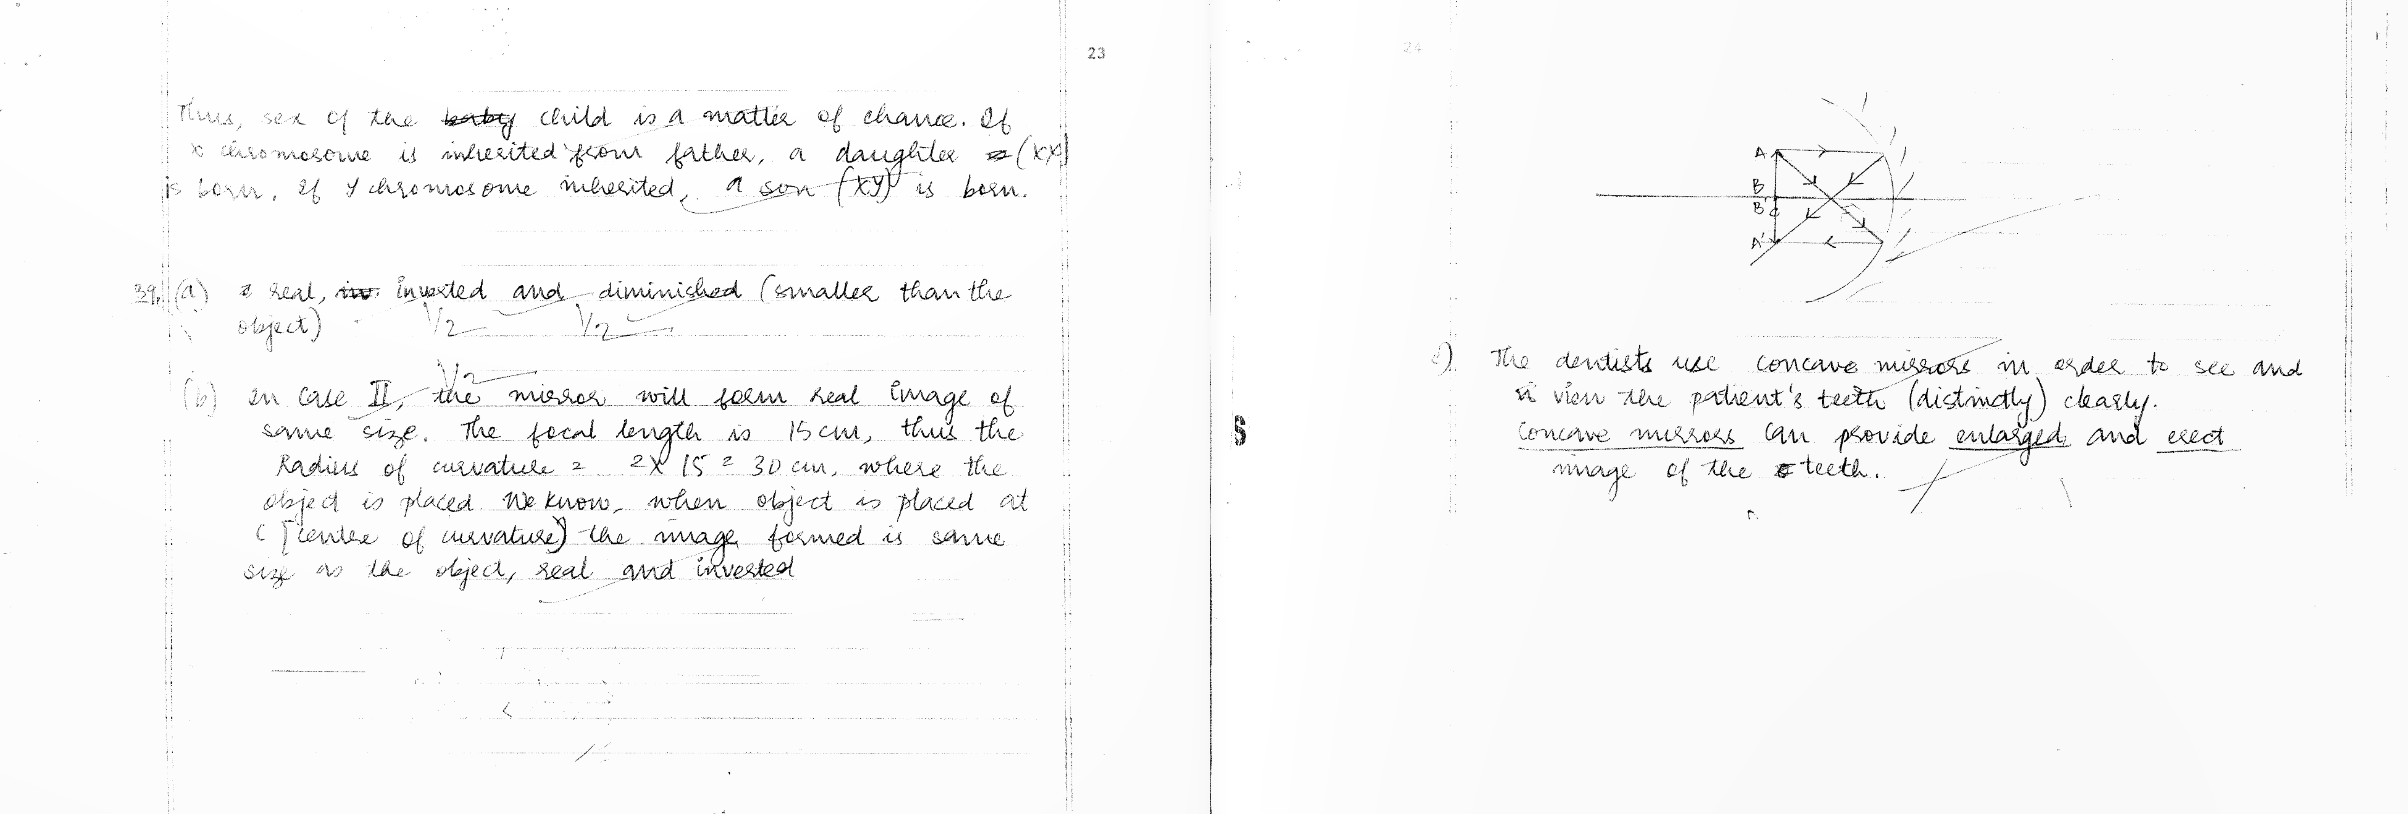 23
Thus, sex of the baby child is a matter of chance. If
X chromosome is inherited from father, a daughter (XX)
is born, If Y chromosome inherited, a son (XY) is born.
39. (a) real, in. inverted and diminished (smaller than the
object)
1/2 1/2
1/2
(b) In Case II, the mirror will form real image of
same size. The focal length is 15 cm, thus the
Radius of curvature = 2 X 15 = 30 cm, where the
object is placed. We know, when object is placed at
C (centre of curvature) the image formed is same
size as the object, real and inverted
24
A
B
B' C
A'
The dentists use concave mirrors in order to see and
view the patient's teeth (distinctly) clearly.
Concave mirrors can provide enlarged and erect
image of the teeth.